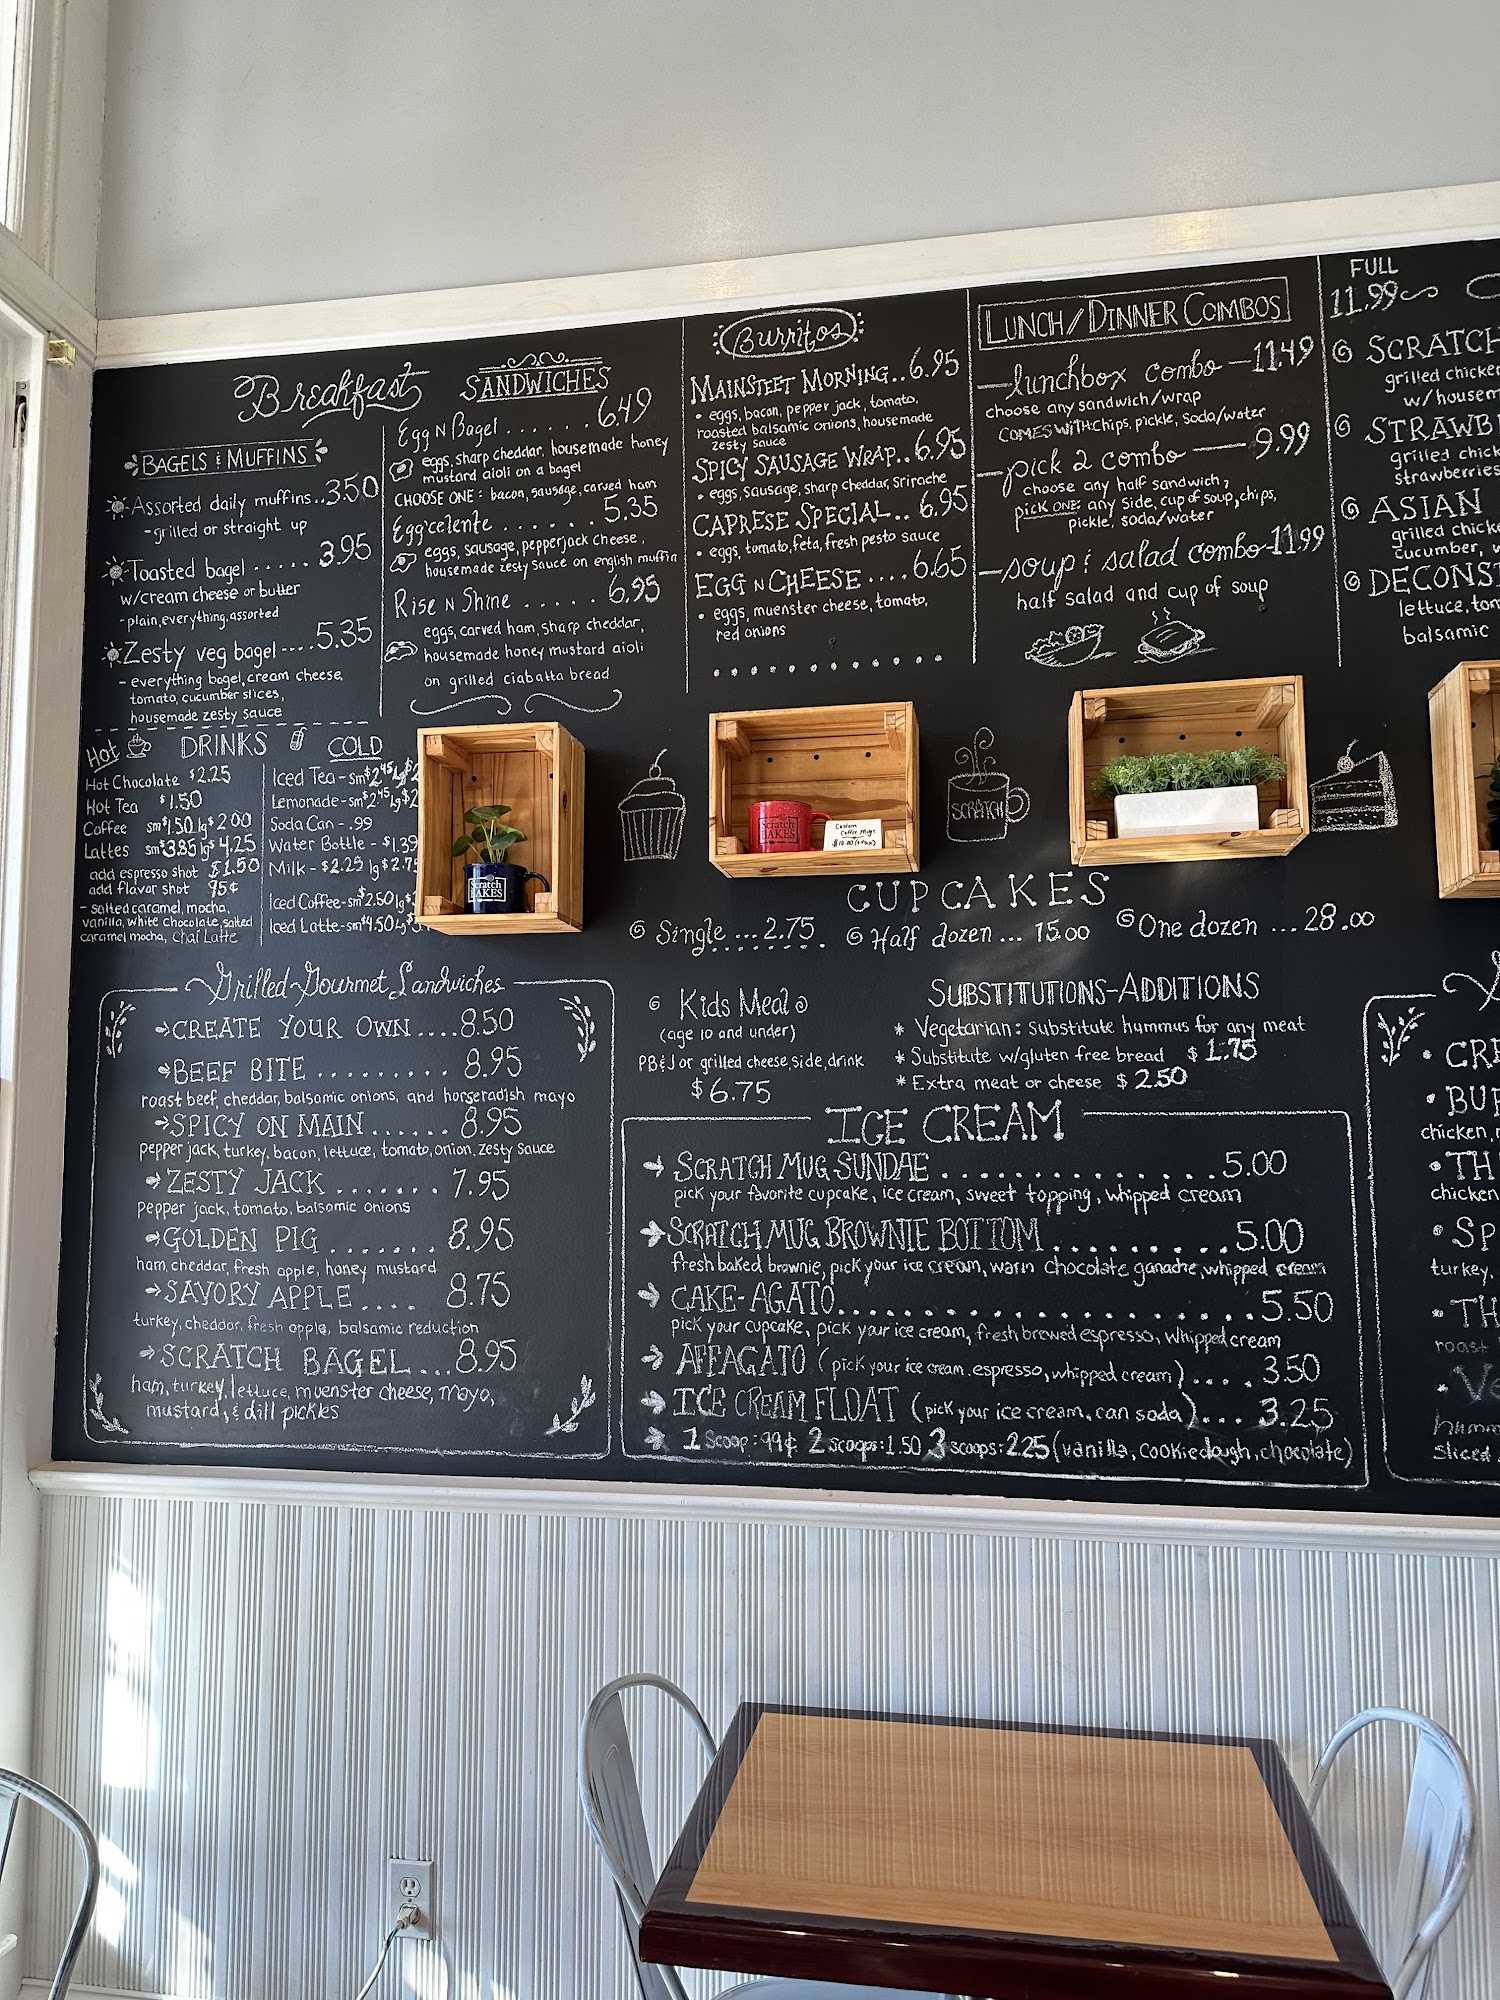 Breakfast
BAGELS & MUFFINS
Assorted daily muffins..3.50
-grilled or straight up
Toasted bagel.....3.95
w/cream cheese or butter
-plain,everything,assorted
Zesty veg bagel----.5.35
- everything bagel, cream cheese,
tomato, cucumber slices,
housemade zesty sauce
SANDWICHES
Egg N Bagel......6.49
eggs, sharp cheddar, housemade honey
mustard aioli on a bagel
CHOOSE ONE: bacon, sausage, carved ham
Egg'celente......5.35
eggs, sausage, pepperjack cheese,
housemade zesty sauce on english muffin
Rise N Shine.....6.95
eggs, carved ham, sharp cheddar,
housemade honey mustard aioli
on grilled ciabatta bread
Burritos
MAINSTEET MORNING..6.95
• eggs, bacon, pepper jack, tomato,
roasted balsamic onions, housemade
zesty sauce
SPICY SAUSAGE WRAP..6.95
• eggs, sausage, sharp cheddar, Sriracha
CAPRESE SPECIAL..6.95
• eggs, tomato, feta, fresh pesto sauce
EGG N CHEESE....6.65
• eggs, muenster cheese, tomato,
red onions
LUNCH/DINNER COMBOS
-lunchbox combo-11.49
choose any sandwich/wrap
COMES WITH: chips, pickle, soda/water
-pick 2 combo-9.99
choose any half sandwich,
pick ONE: any side, cup of soup, chips,
pickle, soda/water
-soup & salad combo-11.99
half salad and cup of soup
FULL
11.99
SCRATCH
grilled chicke
w/housem
STRAWB
grilled chick
strawberries
ASIAN
grilled chicke
cucumber, w
DECONST
lettuce, tom
balsamic
Hot DRINKS COLD
Hot Chocolate $2.25
Hot Tea $1.50
Coffee sm$1.50 lg$2.00
Lattes sm$3.85 lg$4.25
add espresso shot $1.50
add flavor shot 95¢
- salted caramel, mocha,
vanilla, white chocolate, salted
caramel mocha, Chai Latte
Iced Tea-sm$2.45 lg$2
Lemonade-sm$2.45 lg$2
Soda Can-.99
Water Bottle-$1.39
Milk-$2.25 lg$2.75
Iced Coffee-sm$2.50 lg$
Iced Latte-sm$4.50 lg$
Scratch
BAKES
Scratch
BAKES
Custom
Coffee Mugs
$10.00 (+tax)
SCRATCH
CUPCAKES
Single...2.75
Half dozen...15.00
One dozen...28.00
Grilled Gourmet Sandwiches
CREATE YOUR OWN....8.50
BEEF BITE.........8.95
roast beef, cheddar, balsamic onions, and horseradish mayo
SPICY ON MAIN......8.95
pepper jack, turkey, bacon, lettuce, tomato, onion, zesty sauce
ZESTY JACK.......7.95
pepper jack, tomato, balsamic onions
GOLDEN PIG.......8.95
ham, cheddar, fresh apple, honey mustard
SAVORY APPLE....8.75
turkey, cheddar, fresh apple, balsamic reduction
SCRATCH BAGEL...8.95
ham, turkey, lettuce, muenster cheese, mayo,
mustard, & dill pickles
Kids Meal
(age 10 and under)
PB&J or grilled cheese, side, drink
$6.75
SUBSTITUTIONS-ADDITIONS
* Vegetarian: substitute hummus for any meat
* Substitute w/gluten free bread $1.75
* Extra meat or cheese $2.50
ICE CREAM
SCRATCH MUG SUNDAE................5.00
pick your favorite cupcake, ice cream, sweet topping, whipped cream
SCRATCH MUG BROWNIE BOTTOM.........5.00
fresh baked brownie, pick your ice cream, warm chocolate ganache, whipped cream
CAKE-AGATO......................5.50
pick your cupcake, pick your ice cream, fresh brewed espresso, whipped cream
AFFAGATO (pick your ice cream, espresso, whipped cream)....3.50
ICE CREAM FLOAT (pick your ice cream, can soda)...3.25
1 scoop:99¢ 2 scoops:1.50 3 scoops:2.25 (vanilla, cookie dough, chocolate)
CRE
BUF
chicken, r
TH
chicken
SP
turkey,
TH
roast
Ve
humm
sliced